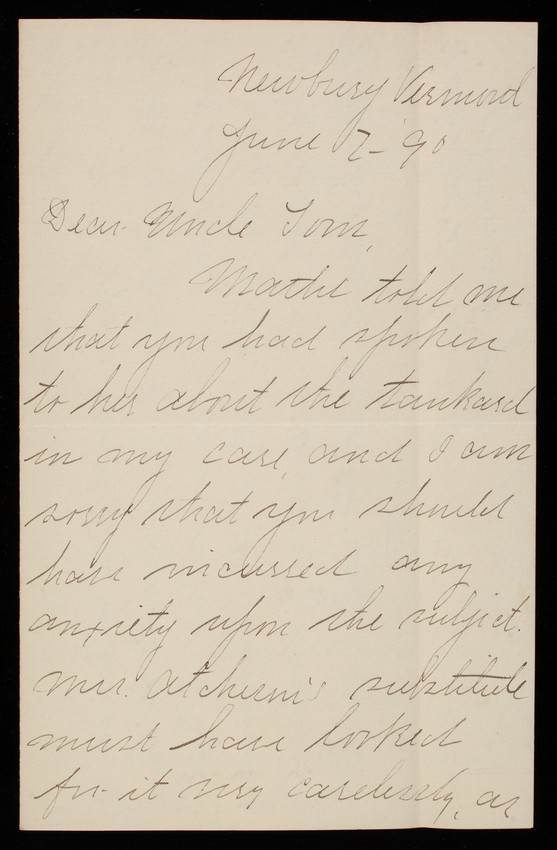 Newbury Vermont
June 7 - '90
Dear Uncle Tom,
Mattie told me
that you had spoken
to her about the tankard
in my care, and I am
sorry that you should
have incurred any
anxiety upon the subject.
Mrs. substitute
must have looked
for it very carelessly, as